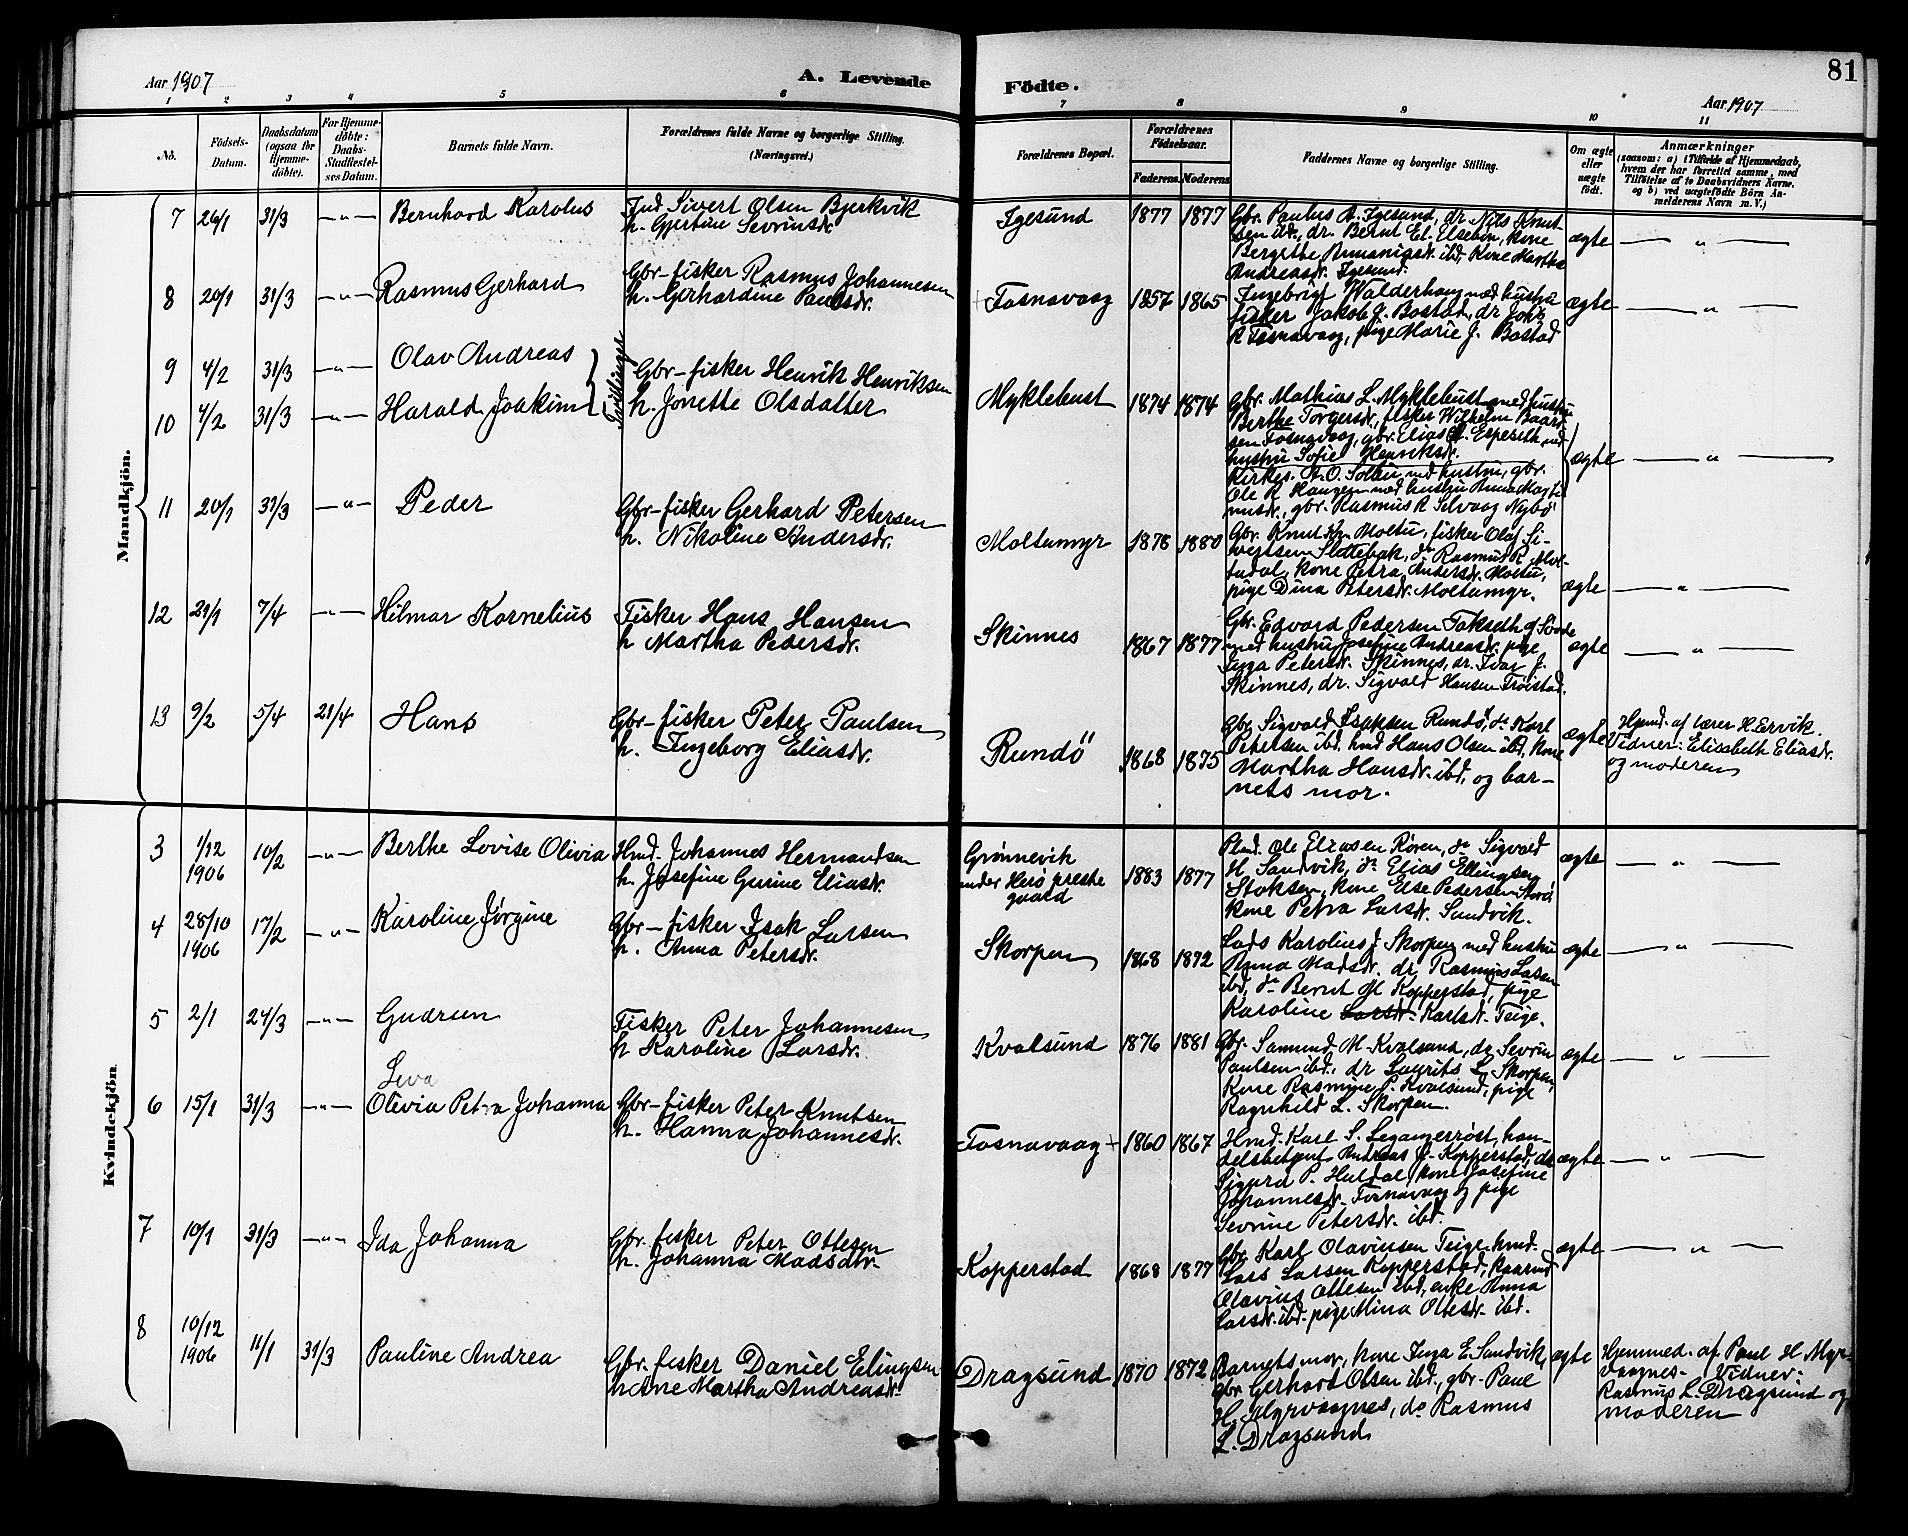 Aar 1907
A. Levende
Födte.
81
Aar 1907
1 2 3 4 5 6 7 8 9 10 11
No.
Födsels-
Datum.
Daabsdatum
(ogsaa for
Hjemme-
döbte).
For Hjemme-
döbte:
Daabs-
Stadfæstel-
ses Datum.
Barnets fulde Navn.
Forældrenes fulde Navne og borgerlige Stilling.
(Næringsvei.)
Forældrenes Bopæl.
Forældrenes
Födselsaar.
Faderens. Moderens.
Faddernes Navne og borgerlige Stilling.
Om ægte
eller
uægte
födt.
Anmærkninger
(saasom: a) i Tilfælde af Hjemmedaab,
hvem der har forrettet samme, med
Tilföielse af to Daabsvidners Navne,
og b) ved uægtefödte Börn An-
melderens Navn m. V.)
Mandkjön.
7 26/1 31/3 —"— Bernhard Karolus
Ind Sivert Olsen Bjerkvik
h. Gjertine Sevrinsdr.
Igesund 1877 1877
Gbr. Paulus A. Igesund, dr. Nils Knut-
sen ibd., dr. Bernt El. Elsebøn, kone
Bergethe ibd., Kone Martha
Andreasdr. Igesund.
ægte — " —
8 20/1 31/3 —"— Rasmus Gerhard
Gbr-fisker Rasmus Johannesen
h. Gerhardine Paulsdr.
Fosnavaag 1857 1865
Ingebrigt Walderhaug med hustru
fisker Jakob J. Bostad, dr Joh.
R Fosnavaag, pige Marie J. Bostad
ægte — " —
9 4/2 31/3 —"— Olav Andreas
10 4/2 31/3 —"— Harald Joakim
Tvillinger
Gbr-fisker Henrik Henriksen
h. Jonette Olsdatter
Myklebust 1874 1874
Gbr. Mathias L. Myklebust med hustru
Berthe Torgersdr., fisker Wilhelm Baard-
sen Fosnavaag, gbr. Elias A. Espeseth med
hustru Sofie Henriksdr.
Kirkes. A. O. Solbu med hustru, gbr.
Ole R Haugen med hustru Anna Magt-
nusdr., gbr. Rasmus R Selvaag Nybø
ægte — " —
11 20/1 31/3 —"— Peder
Gbr-fisker Gerhard Petersen
h. Nikoline Andersdr.
Moltumyr 1878 1880
Gbr. Knut Kn Moltu, fisker Olaf Si-
vertsen Slottebak, do Rasmus R. Mol-
tudal, kone Petra Andersdr. Moltu,
pige Dina Petersdr. Moltumyr.
ægte — " —
12 21/1 7/4 —"— Hilmar Kornelius
Fisker Hans Hansen
h Martha Pedersdr.
Skinnes 1867 1877
Gbr. Edvard Pedersen Takseth
med hustru Josefine Andreasdr. pige
Inga Petersdr. Skinnes, dr. Ivar J.
Skinnes, dr. Sigvald Hansen Frøistad.
ægte — " —
13 9/2 5/4 21/4 Hans
Gbr-fisker Peter Paulsen
h. Ingeborg Eliasdr.
Rundö 1868 1875
Gbr. Sigvald Isaksen Rundö, do Karl
Petersen ibd, hmd Hans Olsen ibd, kone
Martha Hansdr. ibd, og bar-
nets mor.
ægte
Hjemd. af lærer H. Ervik.
Vidner: Elisabeth Eliasdr.
og moderen
Kvindekjön
3 1/12 1906 10/2 —"— Berthe Lovise Olivia
Hmd. Johannes Hermandsen
h. Josefine Gurine Eliasdr.
Grønnevik
under Herø preste
gaard
1883 1877
Pmd. Ole Eliasen Røren, do Sigvald
H. Sandvik, do Elias Ellingsen
Stoksen, kone Else Pedersen
kone Petra Larsdr. Sandvik.
ægte — " —
4 28/10 1906 17/2 —"— Karoline Jørgine
Gbr-fisker Isak Larsen
h. Anna Petersdr.
Skorpen 1868 1872
Lods Karolius J. Skorpen med hustru
Anna Madsdr. dr. Rasmus Larsen
ibd, do Bernt M Kopperstad, pige
Karoline Larsdr. Karlsdr. Teige.
ægte — " —
5 2/1 24/3 —"— Gudrun
Fisker Peter Johannesen
h Karoline Larsdr.
Kvalsund 1876 1881
Gbr. Samund M. Kvalsund, dr. Sevrin
Paulsen ibd., dr Laurits L. Skorpen,
Kone Rasmine P. Kvalsund, pige
Ragnhild L. Skorpen.
ægte — " —
6 15/1 31/3 —"— Olivia Petra Johanna
Gbr-fisker Peter Knutsen
h. Hanna Johannesdr.
Fosnavaag + 1860 1867
Hmd. Karl S. Leganger­røst, han-
delsbetjent Andreas J. Kopperstad, do
Sigurd P. Huldal, kone Josefine
Johannesdr. Fosnavaag og pige
Sevrine Petersdr. ibd.
ægte — " —
7 10/1 31/3 —"— Ida Johanna
Gbr. fisker Peter Ottesen
h. Johanna Madsdtr.
Kopperstad 1868 1877
Gbr. Karl Olavinsen Teige, hmd.
Lars Larsen Kopperstad, kaarmd
Olavius Ottesen ibd, enke Anna
Larsdr. ibd. pige Mina Ottesdr. ibd.
ægte — " —
8 10/12 1906 11/1 31/3 Pauline Andrea
Gbr. fisker Daniel Elingsen
h. Ane Martha Andreasdr.
Dragsund 1870 1872
Barnets mor, kone Inga E. Sandvik,
gbr Gerhard Olsen ibd., gbr. Paul
H. Myrvaagnes, do Rasmus
L. Dragsund
ægte
Hjemmed. af Paul H Myr-
vaagnes. Vidner:
Rasmus L. Dragsund og
moderen